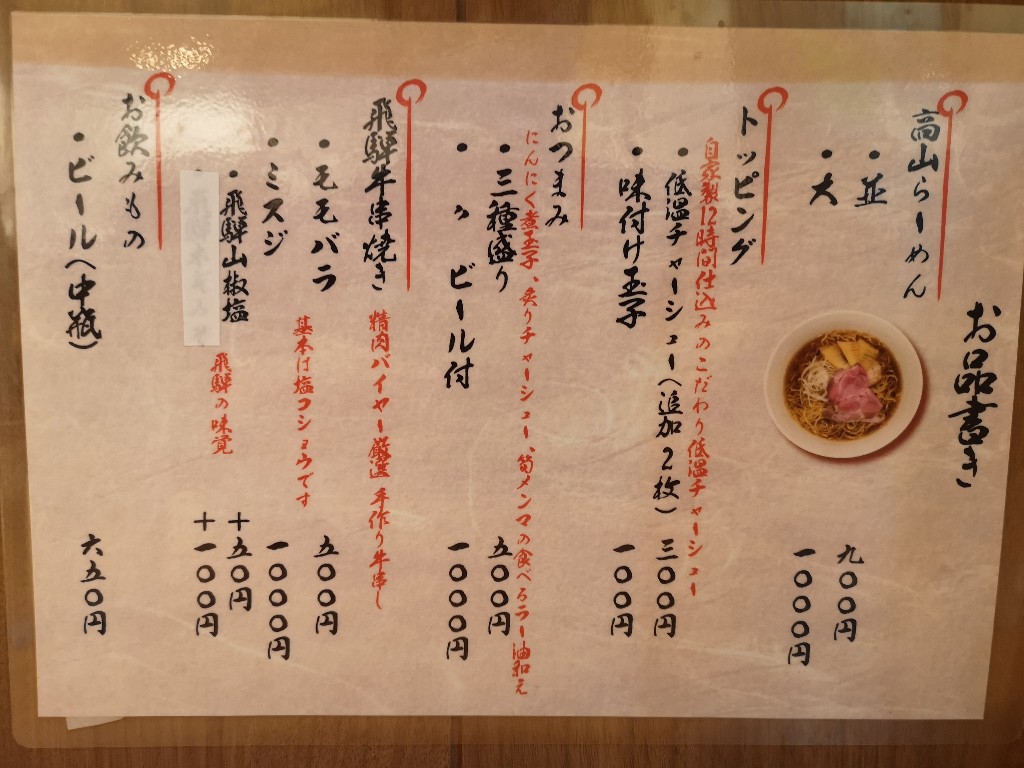 お品書き
高山らーめん
・並 九〇〇円
・大 一〇〇〇円
トッピング
自家製12時間仕込みのこだわり低温チャーシュー
・低温チャーシュー(追加2枚) 三〇〇円
・味付け玉子 一〇〇円
おつまみ
にんにく煮玉子、炙りチャーシュー、筍メンマの食べるラー油和え
・三種盛り 五〇〇円
・〃 ビール付 一〇〇〇円
飛騨牛串焼き
精肉バイヤー厳選 手作り牛串し
・モモバラ 五〇〇円
基本は塩コショウです
・ミスジ 一〇〇〇円
・飛騨山椒塩 十五〇円
飛騨の味覚
十一〇〇円
お飲みもの
・ビール(中瓶) 六五〇円